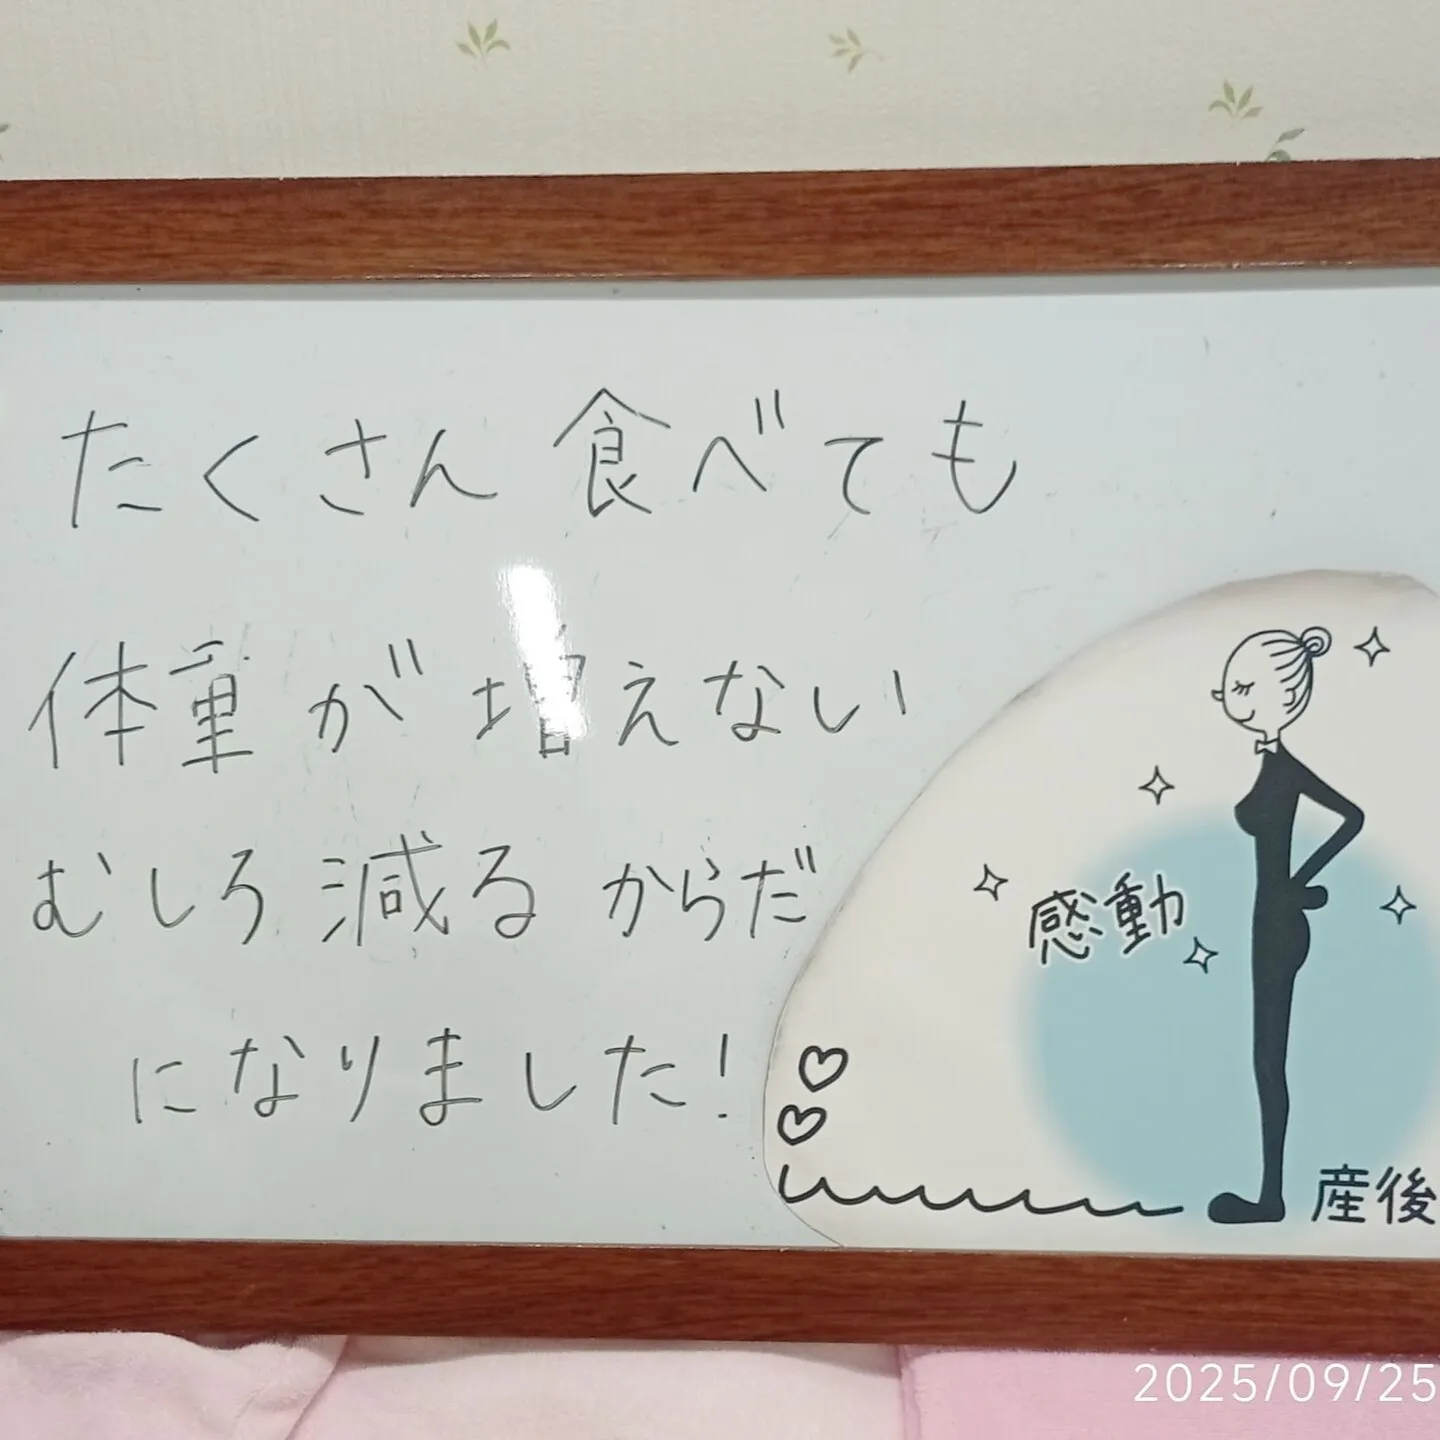 たくさん食べても
体重が増えない
むしろ減るからだ
になりました!
感動
産後
2025/09/25